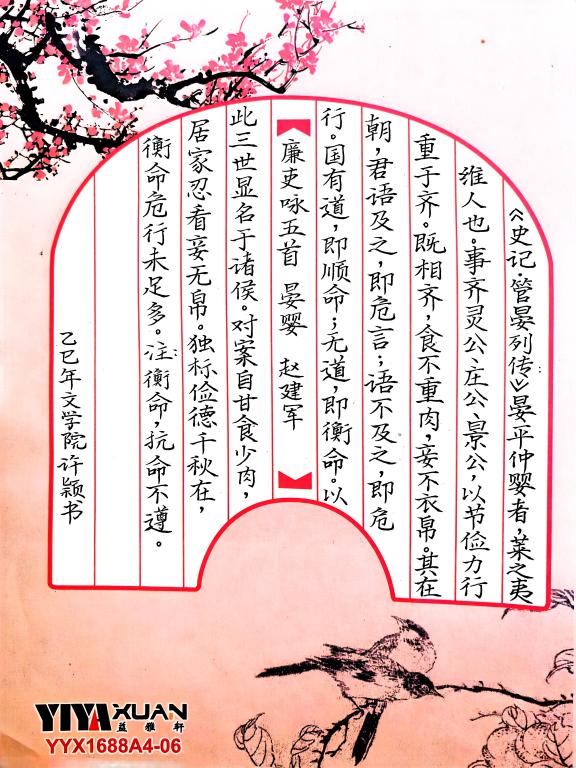 《史记·管晏列传》晏平仲婴者，莱之夷
维人也。事齐灵公、庄公、景公，以节俭力行
重于齐。既相齐，食不重肉，妾不衣帛。其在
朝，君语及之，即危言；语不及之，即危
行。国有道，即顺命；无道，即衡命。以
廉吏咏五首 晏婴 赵建军
此三世显名于诸侯。对案自甘食少肉，
居家忍看妾无帛。独标俭德千秋在，
衡命危行未足多。注：衡命，抗命不遵。
乙巳年文学院许颖书
YIYA XUAN
益雅轩
YYX1688A4-06